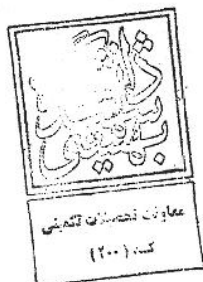 دانشگاه
شهید
بهشتی
معاونت تحصیلات تکمیلی
(۲۰۰)